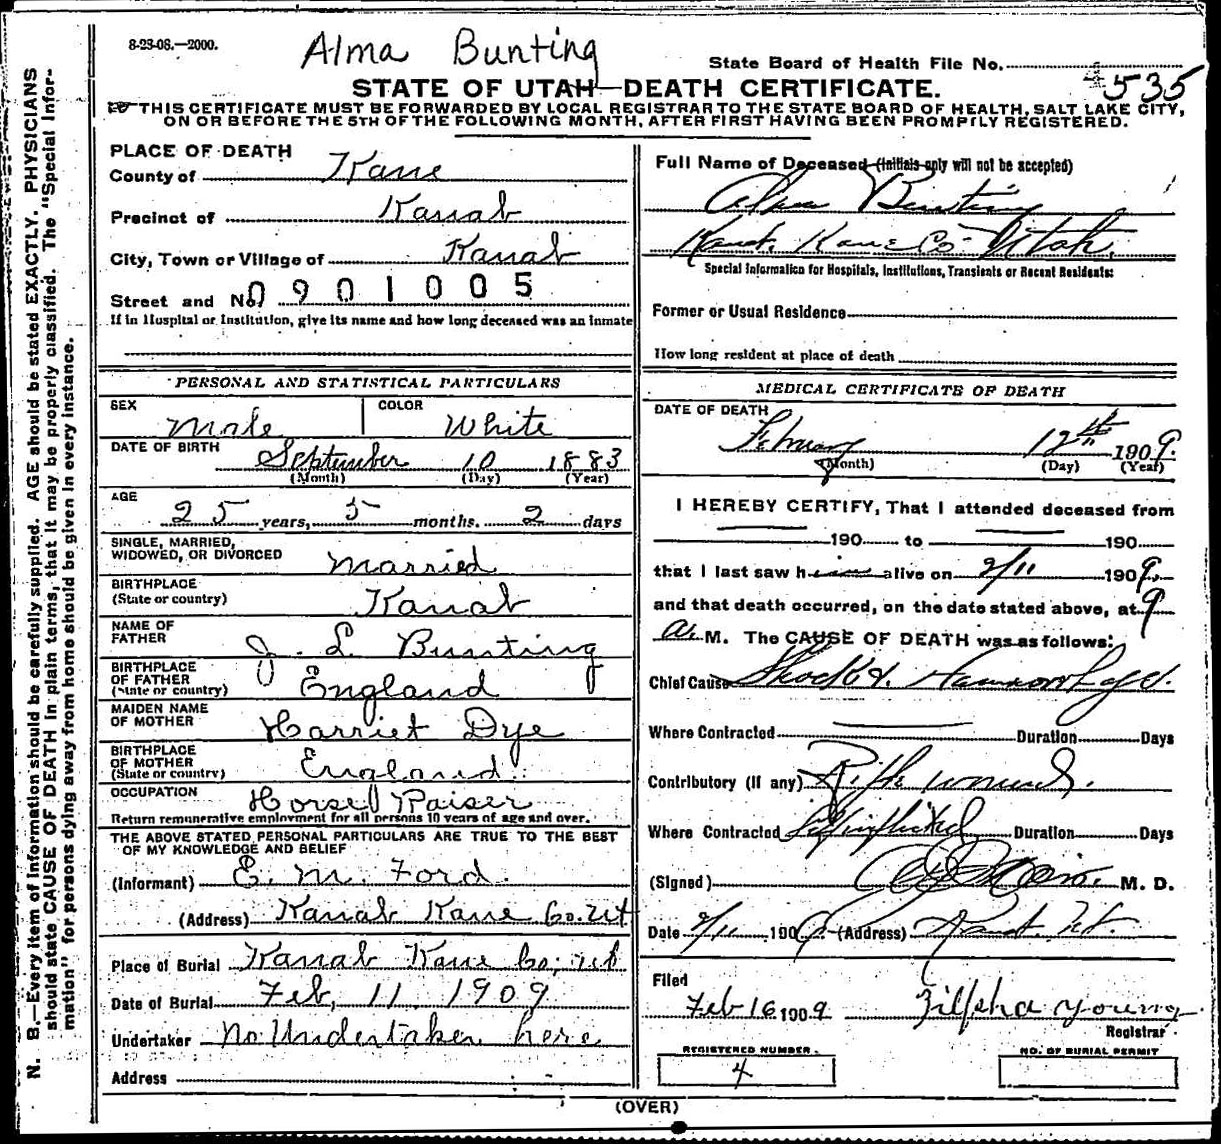 8-23-08.—2000.
Alma Bunting
State Board of Health File No.
535
STATE OF UTAH—DEATH CERTIFICATE.
THIS CERTIFICATE MUST BE FORWARDED BY LOCAL REGISTRAR TO THE STATE BOARD OF HEALTH, SALT LAKE CITY,
ON OR BEFORE THE 5TH OF THE FOLLOWING MONTH, AFTER FIRST HAVING BEEN PROMPTLY REGISTERED.
N. B.—Every item of information should be carefully supplied. AGE should be stated EXACTLY. PHYSICIANS
should state CAUSE OF DEATH in plain terms, that it may be properly classified. The "Special Infor-
mation" for persons dying away from home should be given in every instance.
PLACE OF DEATH
County of Kane
Precinct of Kanab
City, Town or Village of Kanab
Street and No. 0901005
If in Hospital or Institution, give its name and how long deceased was an inmate
PERSONAL AND STATISTICAL PARTICULARS
SEX Male COLOR White
DATE OF BIRTH September 10 1883
(Month) (Day) (Year)
AGE
25 years, 5 months. 2 days
SINGLE, MARRIED,
WIDOWED, OR DIVORCED Married
BIRTHPLACE
(State or country) Kanab
NAME OF
FATHER J. L. Bunting
BIRTHPLACE
OF FATHER
(State or country) England
MAIDEN NAME
OF MOTHER Harriet Dye
BIRTHPLACE
OF MOTHER
(State or country) England
OCCUPATION Horse Raiser
Return remunerative employment for all persons 10 years of age and over.
THE ABOVE STATED PERSONAL PARTICULARS ARE TRUE TO THE BEST
OF MY KNOWLEDGE AND BELIEF
(Informant) E. M. Ford.
(Address) Kanab Kane Co. Ut
Place of Burial Kanab Kane Co; Ut
Date of Burial Feb, 11 1909
Undertaker No Undertaker here
Address
Full Name of Deceased (Initials only will not be accepted)
Alma Bunting
Kanab. Kane Co Utah.
Special Information for Hospitals, Institutions, Transients or Recent Residents:
Former or Usual Residence
How long resident at place of death
MEDICAL CERTIFICATE OF DEATH
DATE OF DEATH
February 12th 1909.
(Month) (Day) (Year)
I HEREBY CERTIFY, That I attended deceased from
190 to 190
that I last saw him alive on 2/11 1909.
and that death occurred, on the date stated above, at 9
A. M. The CAUSE OF DEATH was as follows:
Chief Cause Shock &
Where Contracted Duration Days
Contributory (if any) Rifle wound.
Where Contracted Self inflicted Duration Days
(Signed) M. D.
Date 2/11 1909 (Address) Kanab. Ut.
Filed
Feb 16 1909 Zilpha Young
Registrar
REGISTERED NUMBER.
4
NO. OF BURIAL PERMIT
(OVER)